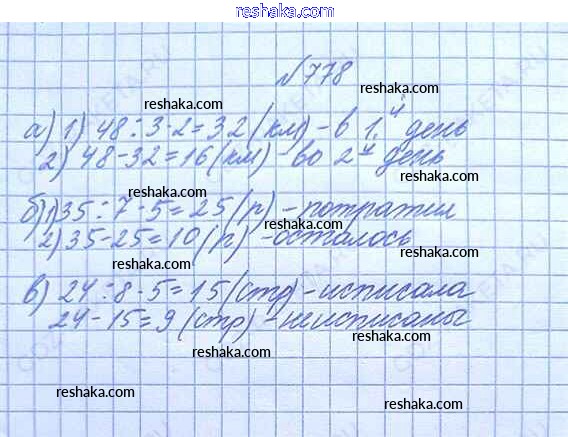 reshaka.com
№778
reshaka.com
reshaka.com
а) 1) 48 : 3 · 2 = 32 (км) – в 1й день
reshaka.com
2) 48 – 32 = 16 (км) – во 2й день
reshaka.com
б) 1) 35 : 7 · 5 = 25 (р) – потратил
reshaka.com
2) 35 – 25 = 10 (р) – осталось
reshaka.com
reshaka.com
в) 24 : 8 · 5 = 15 (стр) – исписала
24 – 15 = 9 (стр) – неисписаны
reshaka.com
reshaka.com
reshaka.com
reshaka.com